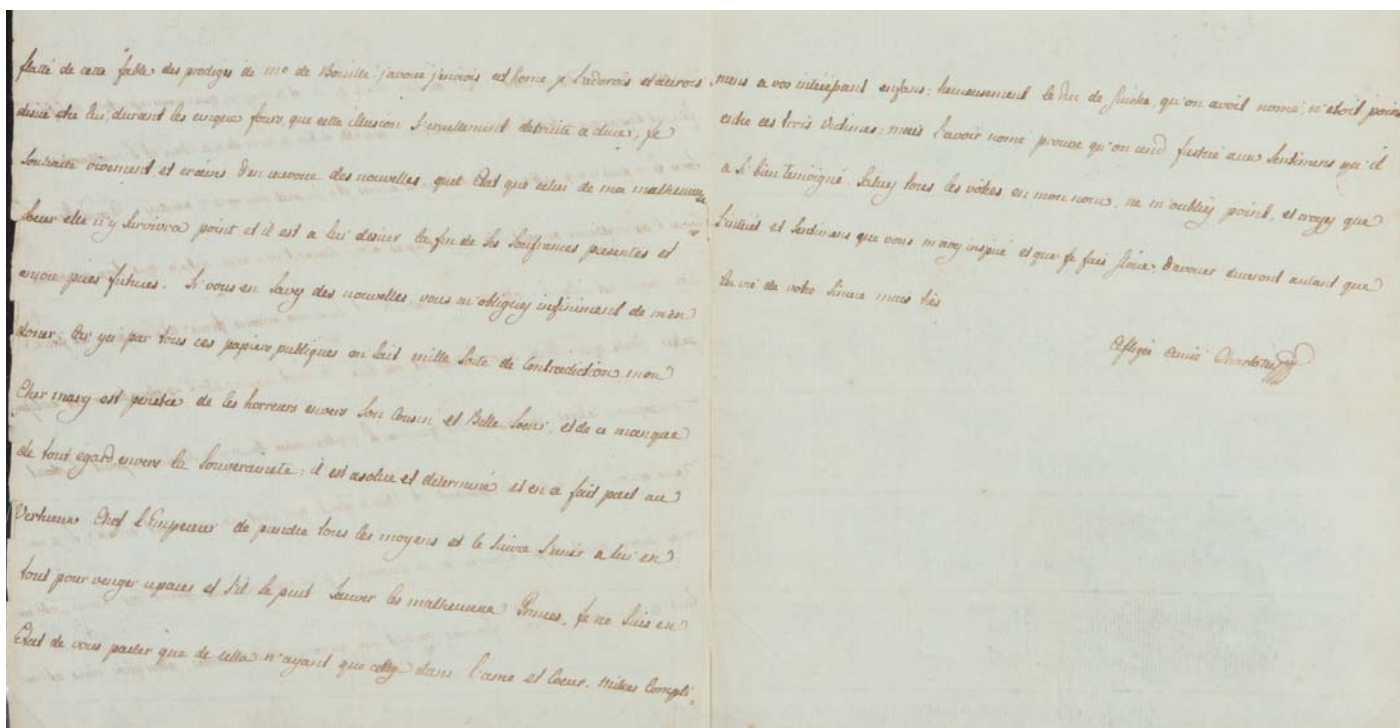 flatté de cette fable des prodiges de mr de Bouille j'avoue j'enviois cet home je l'adorois et aurois
desiré etre lui durant les cinque jours que cette illusion si cruellement detruite a duré, je
souhaite vivement et crains d'en recevoir des nouvelles, quel Etat que celui de ma malheureuse
soeur elle n'y survivra point et il est a lui desirer la fin de ses soufrances presentes et
encor pires futures. Si vous en savez des nouvelles, vous m'obligez infiniment de m'en
doner; Car ycy par tous ces papiers publiques on sait mille sorte de Contradiction, mon
Cher mary est penetré de ces horreurs envers son Cousin et Belle soeur, et de ce manque
de tout egard envers la souveraineté; il est resolue et determiné et en a fait part au
Vertueux Chef l'Empereur de prendre tous les moyens et le suivre s'unir a lui en
tout pour venger reparer et s'il se peut sauver les malheureux Princes. je ne suis en
Etat de vous parler que de cella n'ayant que cela dans l'ame et Coeur. Milles Compli-
mens a vos interessant enfans; heureusement le duc de Guiche, qu'on avoit nomé n'etoit point
entre ces trois victimes; mais l'avoir nomé prouve qu'on rend justice aux sentimens qu'il
a si bien temoigné. Saluez tous les votres en mon nom, ne m'oubliez point, et croyez que
l'interest et sentimens que vous m'avez inspiré et que je fais gloire d'avouer dureront autant que
la vie de votre sincere mais tres
afligée amie Charlotte